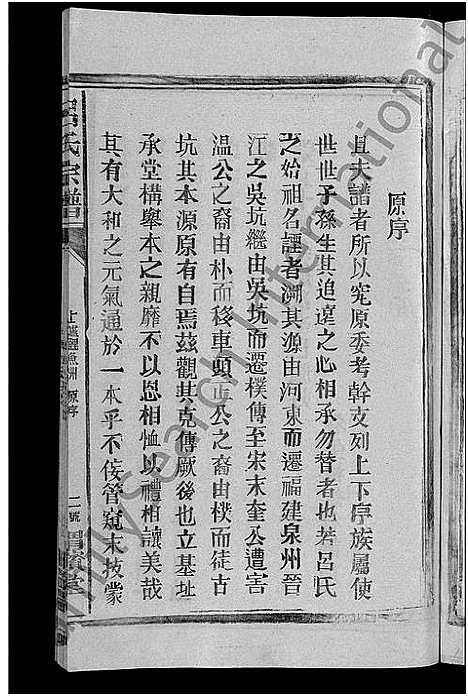 原序
且夫譜者所以究原委考幹支列上下序族屬使
世世子孫生其追遠之心相承勿替者也若呂氏
之始祖名諲者溯其源由河東而遷福建泉州晉
江之吳坑繼由吳坑而遷樸傳至宋末奎公遭害
温公之裔由朴而移車頭正公之裔由樸而徒古
坑其本源原有自焉兹觀其克傳厥後也立基址
承堂構舉本之親靡不以恩相恤以禮相讓美哉
其有大和之元氣通於一本乎不佞管窺末技蒙
呂氏宗譜
上遙鯉魚洲 原序
二號
渭濱堂
FamilySearch International